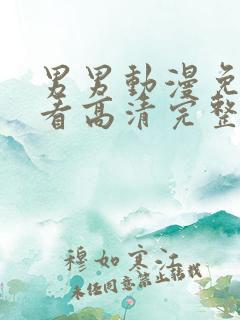 男男動漫免
看高清完整
穆如寒江
未经同意禁止转载